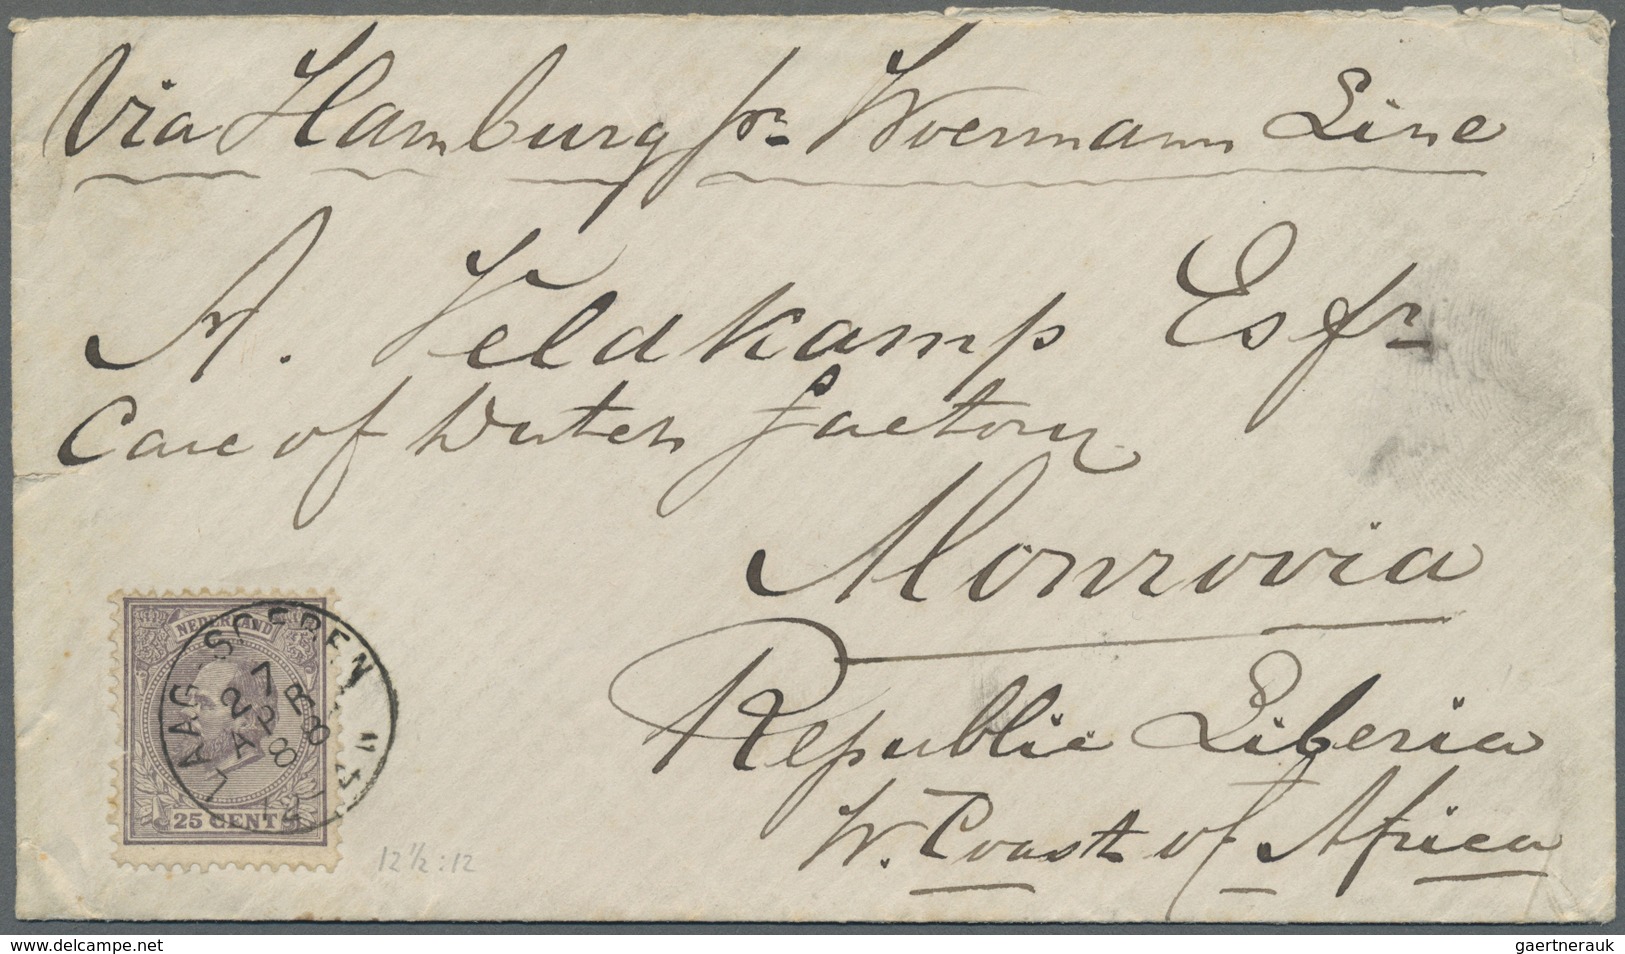 Via Hamburg pr Woermann Line
A. Veldkamp Esqr
Care of Dutch factory
Monrovia
Republic Liberia
W. Coast of Africa
NEDERLAND
25 CENT
LAAG-SOEREN
27
APR
88
12½:12
Click to see in full size
gaertnerauk